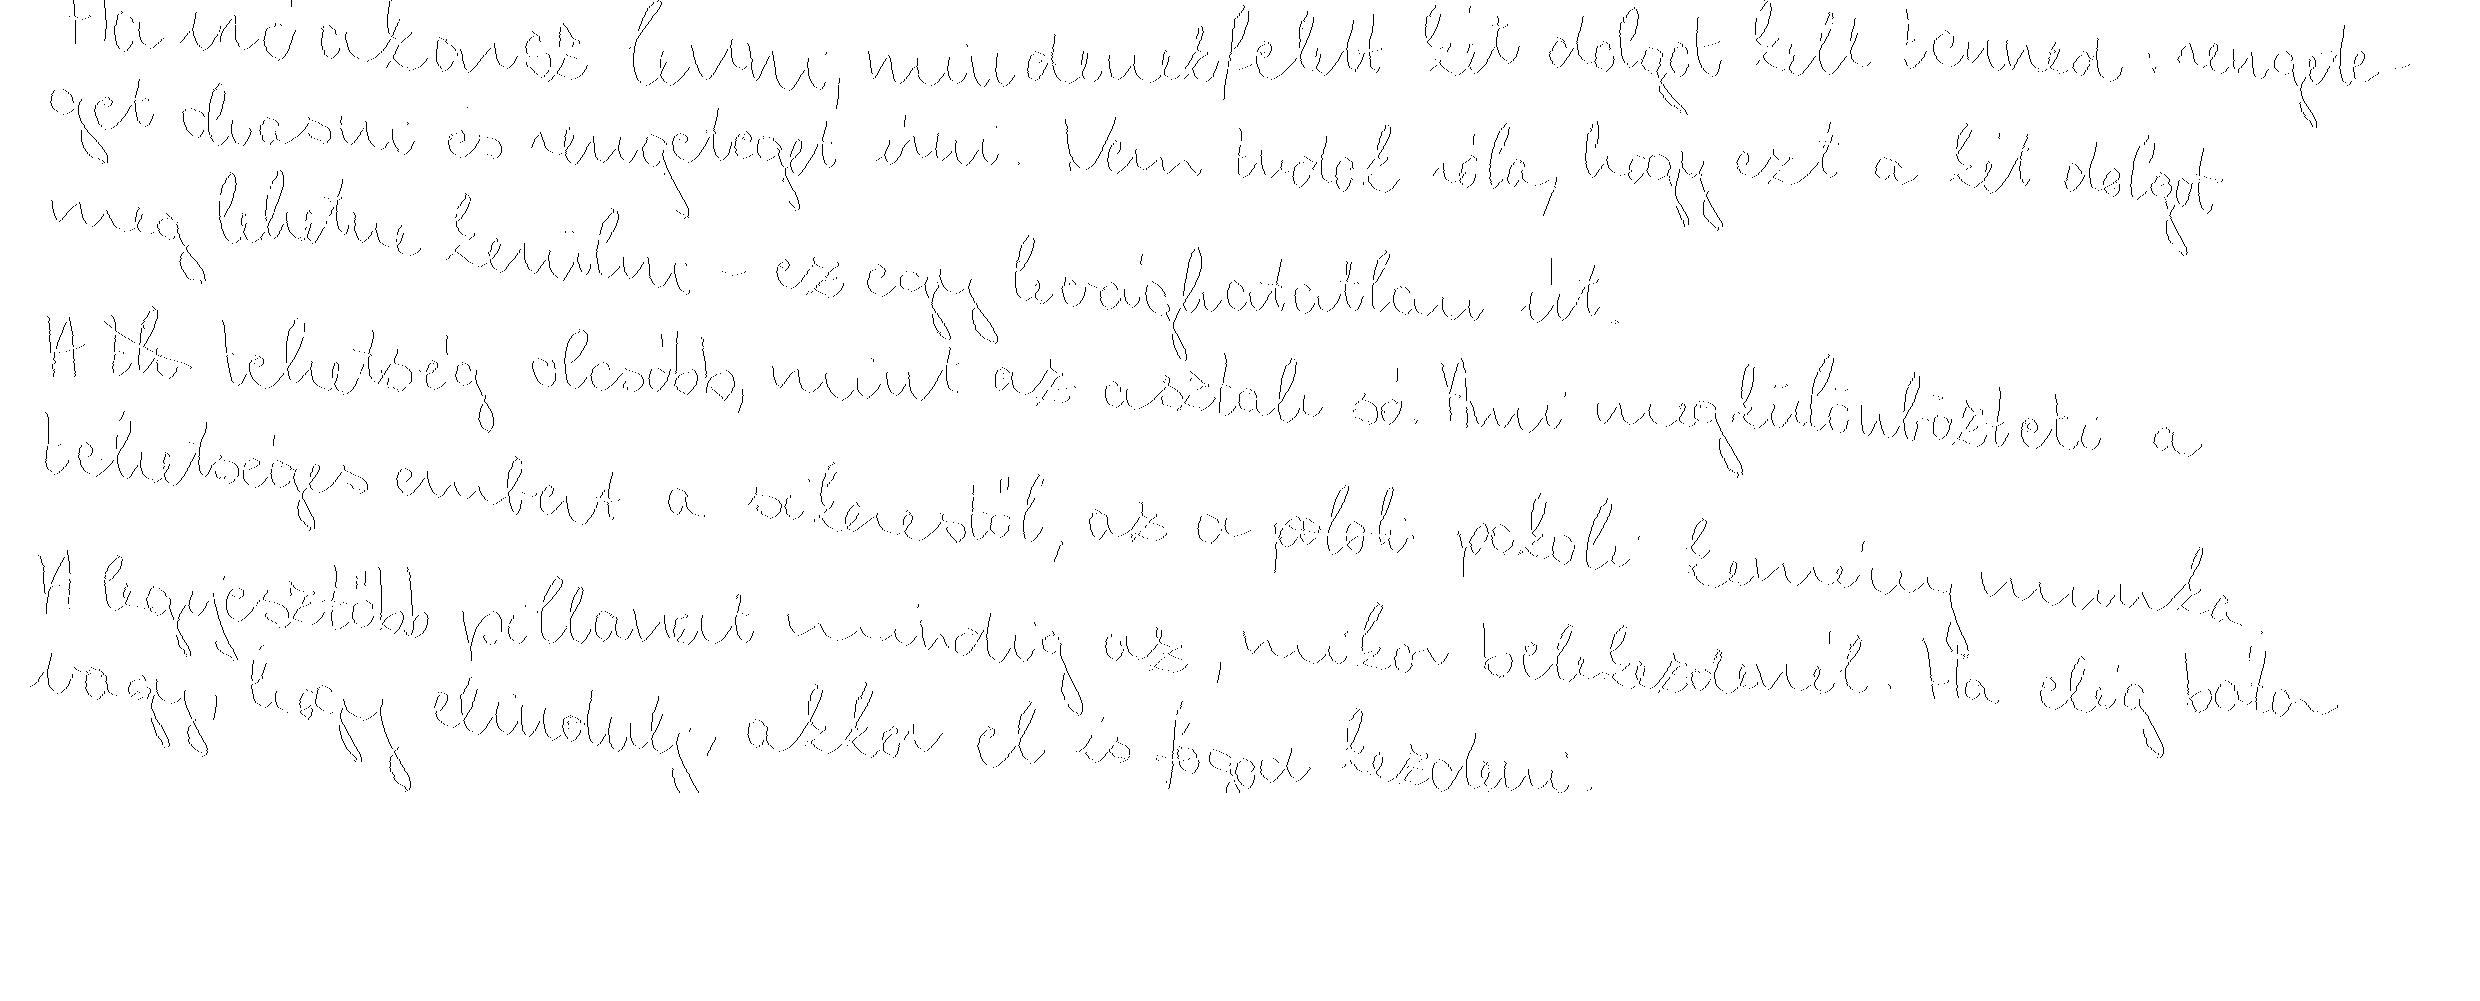 Ha író akarsz lenni, mindenekfelett két dolgot kell tenned: rengete-
get olvasni és rengeteget írni. Nem tudok róla, hogy ezt a két dolgot
meg lehetne kerülni - ez egy levághatatlan út.
A tehetség olcsóbb, mint az asztali só. Ami megkülönbözteti a
tehetséges embert a sikerestől, az a pokoli pokoli kemény munka.
A legijesztőbb pillanat mindig az, mikor belekezdenél. Ha elég bátor
vagy, hogy elindulj, akkor el is fogod kezdeni.